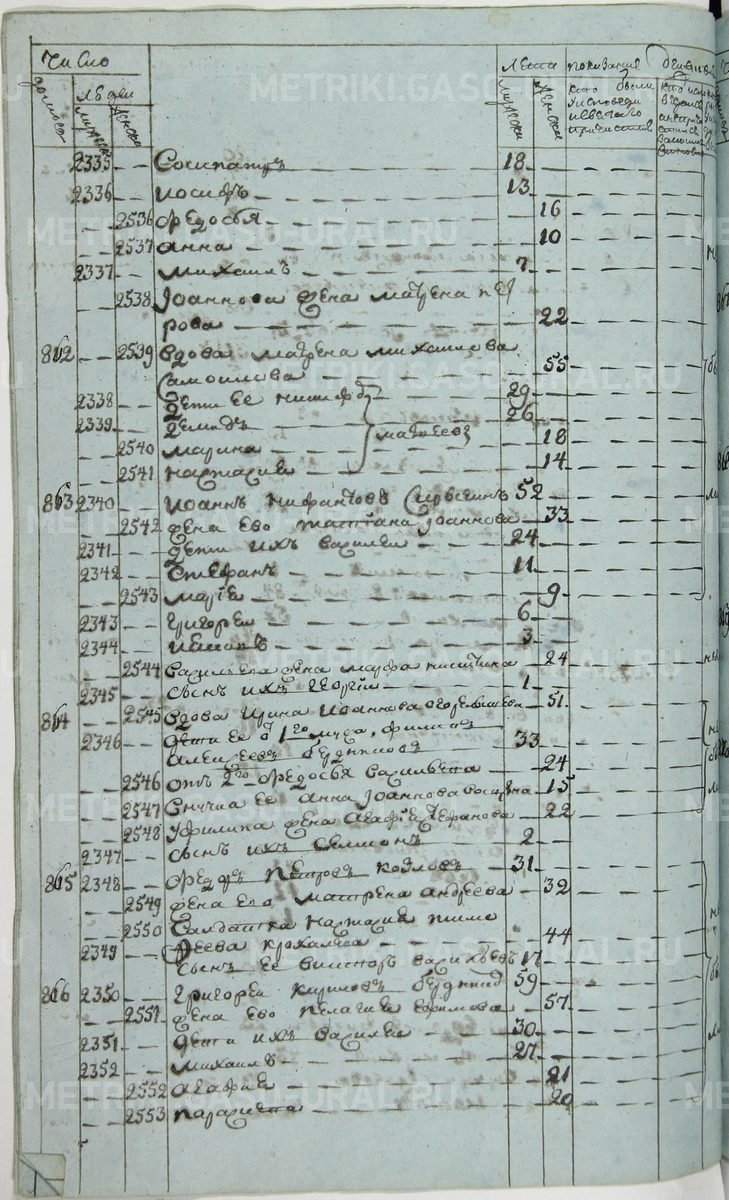 Число
Лета
показание
домовъ
людей
мужеска
женска
мужеска
женска
кто были
у исповеди
и святаго
причастия
METRIKI.GASO-URAL.RU
2335 Сосипатръ 18
2336 Иосифъ 13
2536 Ѳедосья 16
2537 Анна 10
2337 Михаилъ 7
2538 Iоаннова жена Матрена пет
рова 22
862 2539 Вдова Матрена Михаилова
Самоилова 55
2338 Дети ее Никифоръ 29
2339 Демидъ 26
Матвеевы
2540 Марина 18
2541 Наталия 14
863 2340 Иоаннъ Нифантовъ 52
2542 Жена ево Татиана Iоаннова 33
2341 дети ихъ Василеи 24
2342 Стефанъ 11
2543 Марiя 9
2343 Григореи 6
2344 3
2544 Васильева жена Марфа Никитина 24
2345 Сынъ ихъ Георгiи 1
864 2545 Вдова Ирина Иоаннова 51
2346 Дети ее о 1го мужа Филипъ 33
Алексеевъ Бердниковъ
2546 отъ 2го Ѳедосья Васильева 24
2547 Внучка ее Анна Iоаннова 15
2548 У Филипа жена Агафiя Стефанова 22
2347 Сынъ ихъ Симионъ 2
865 2348 Ѳедоръ Петровъ Козловъ 31
2549 Жена его Матрена Андреева 32
2550 Салдатка Наталия Тимо
феева Крохалева 44
2349 Сынъ ее Викторъ Васильевъ 17
866 2350 Григореи Кириловъ 59
2551 Жена ево Пелагия Ефимова 57
2351 Дети ихъ Василеи 30
2352 Михаилъ 27
2552 Агафия 21
2553 Параскева 20